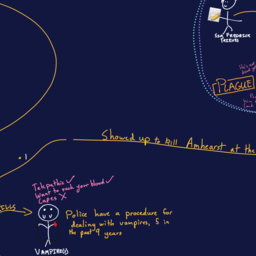 SGM FREDRICK
PLAGUE
Showed up to kill Amhearst at the
+1
Telepathic ✓
Want to suck your blood ✓
Capes X
Police have a procedure for
dealing with vampires, 5 in
the past 9 years
VAMPIRE(S)